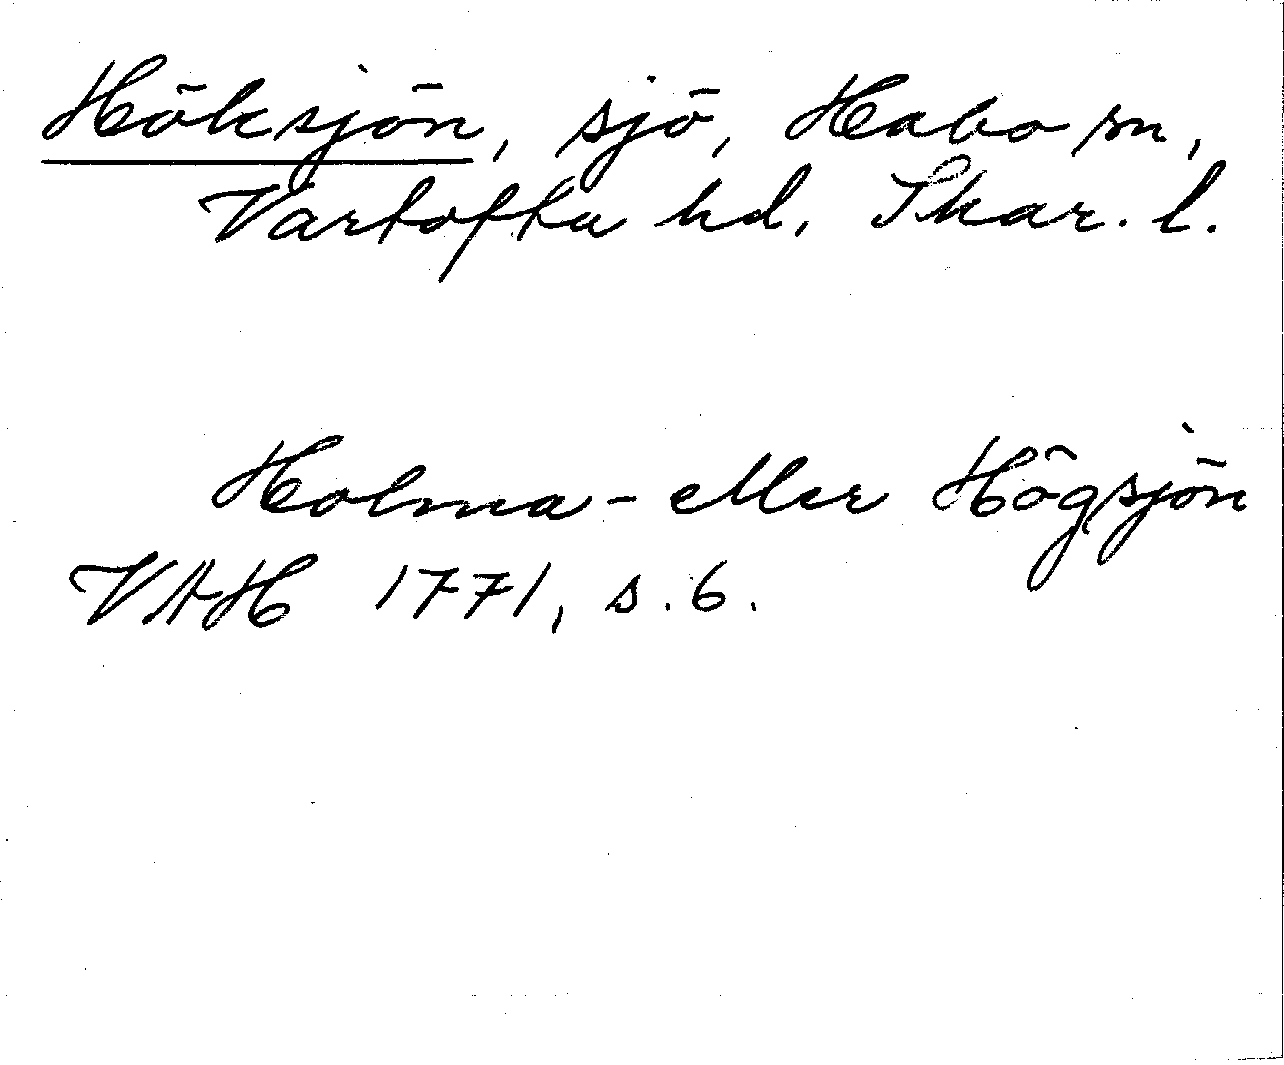 Höksjön, sjö, Habo sn,
Vartofta hd. Skar. l.
Holma- eller Högsjön
VAH 1771, s. 6.